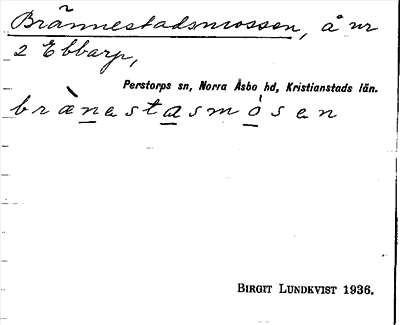 Brännestadsmossen, å nr
2 Ebbarp,
Perstorps sn, Norra Åsbo hd, Kristianstads län.
bræ̀nastasmósen
BIRGIT LUNDKVIST 1936.